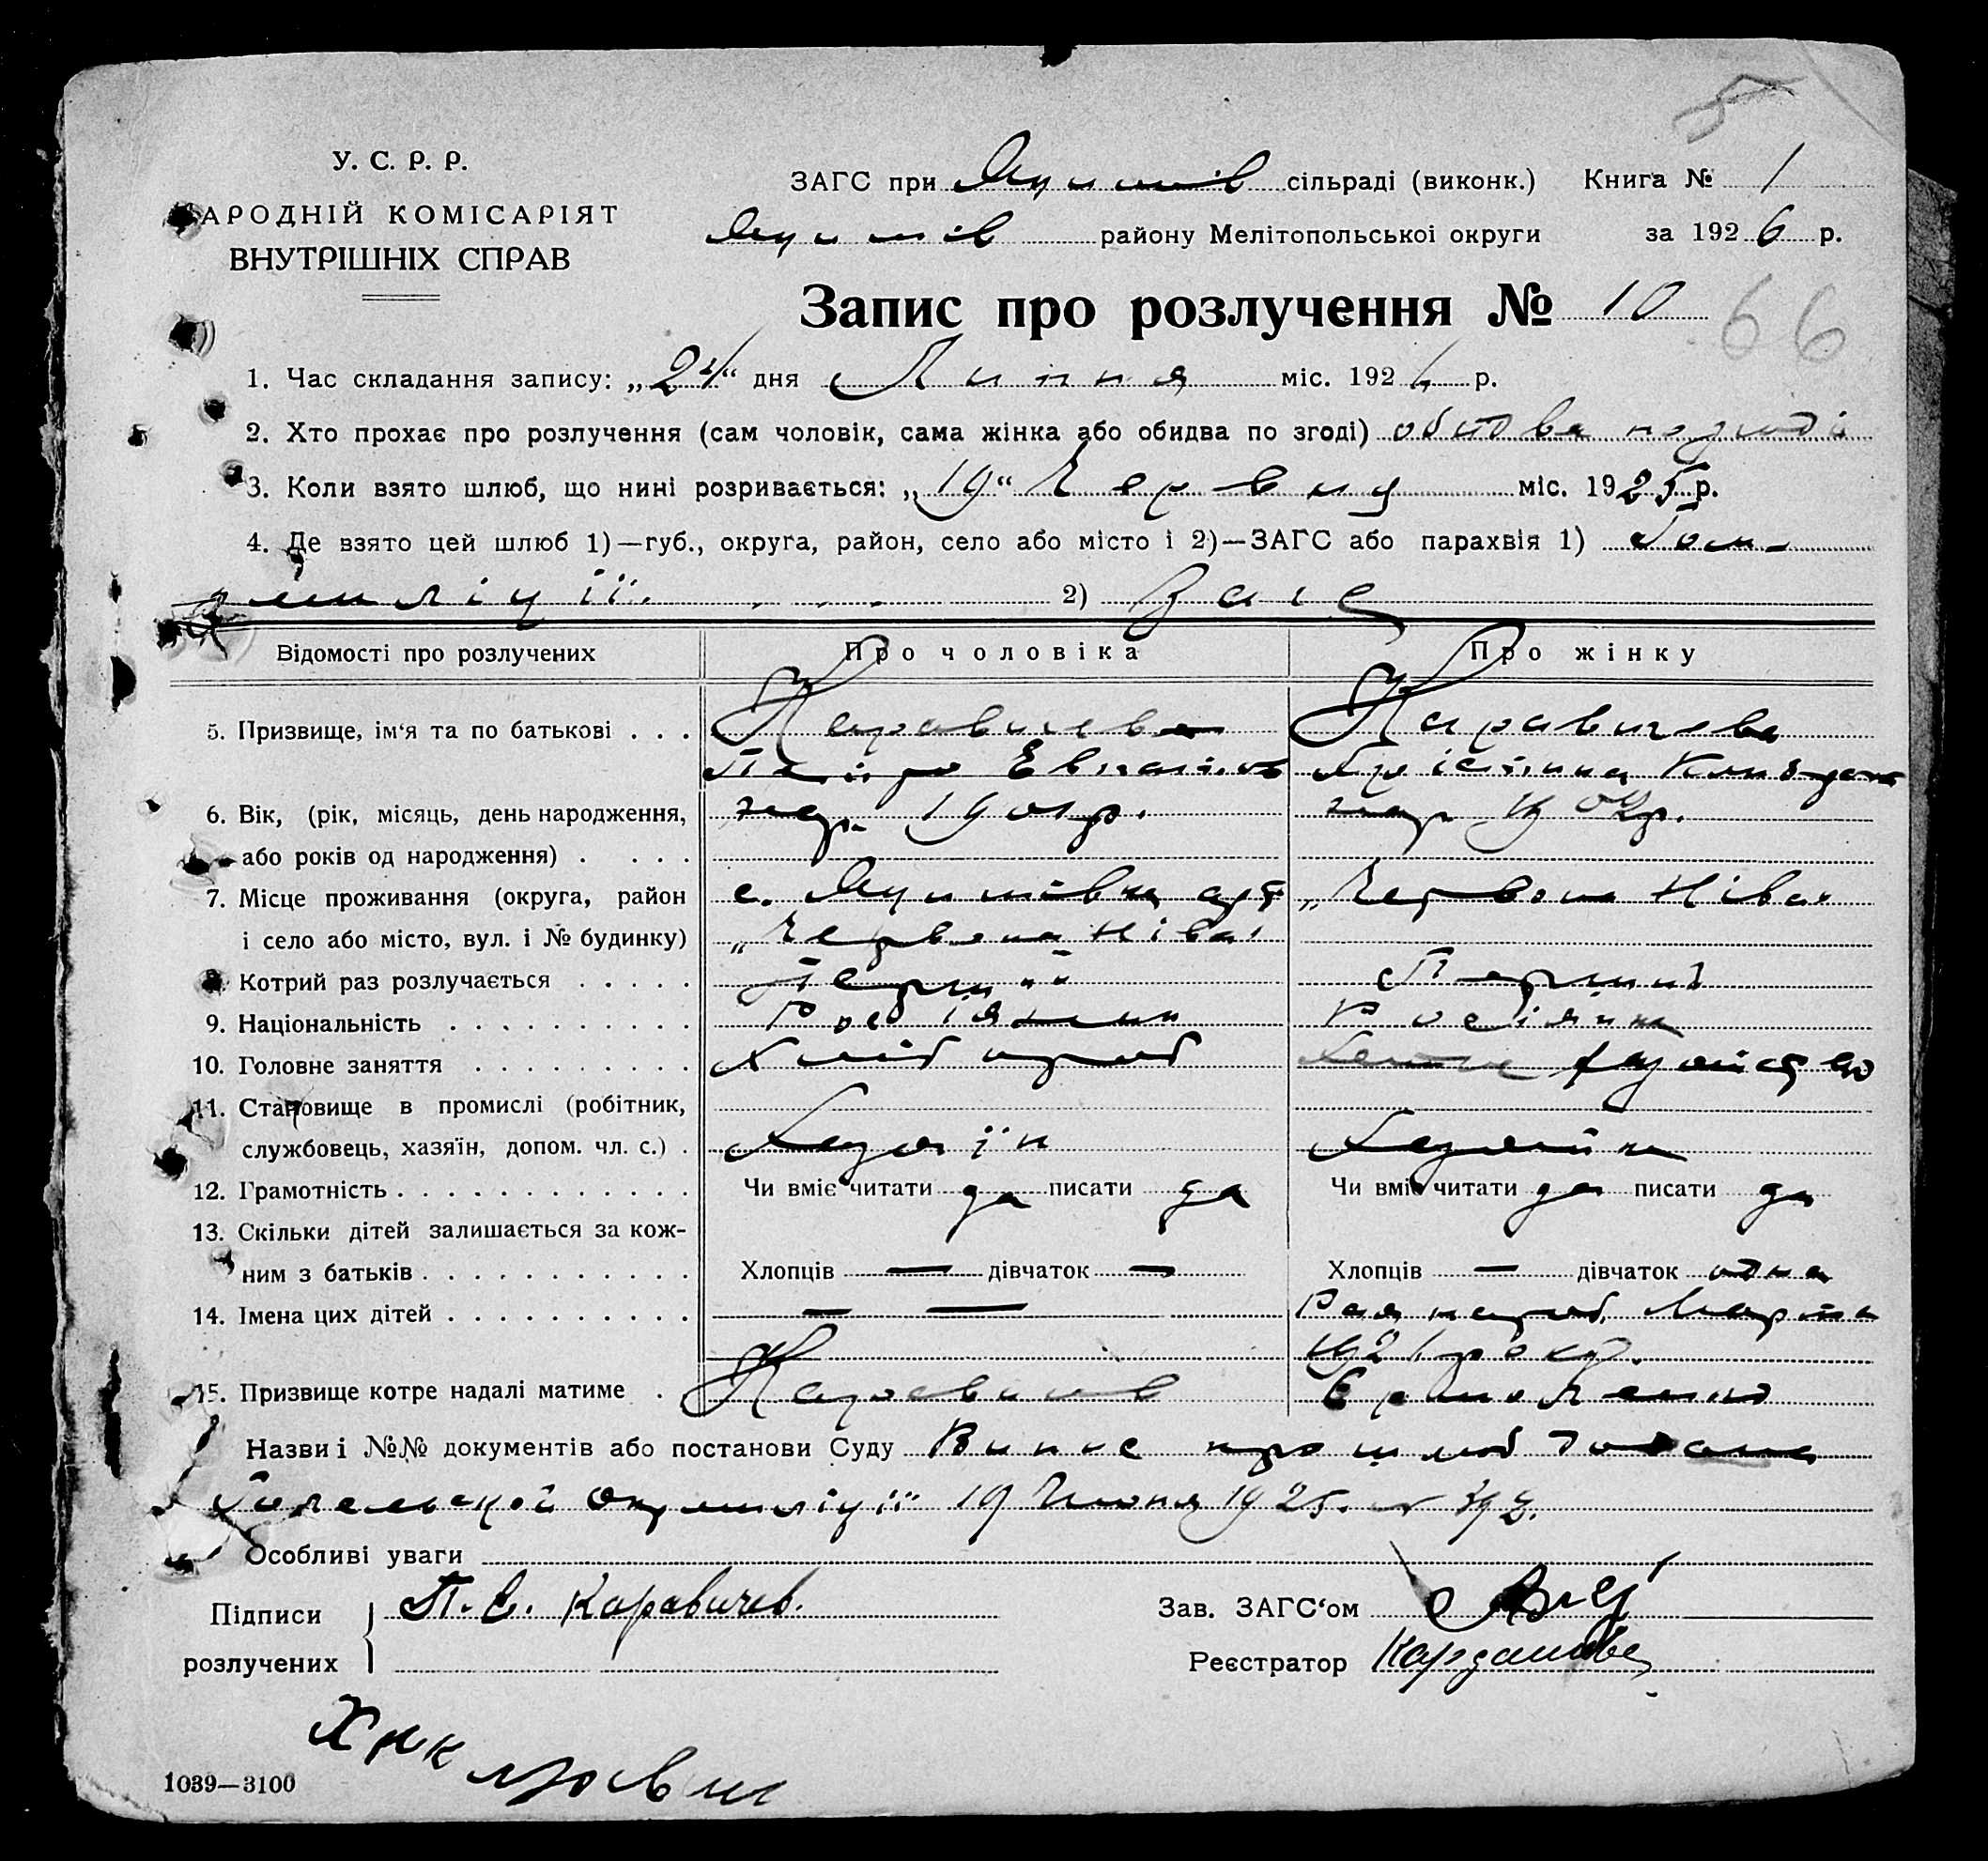 У. С. Р. Р.
НАРОДНІЙ КОМІСАРІЯТ
ВНУТРІШНІХ СПРАВ
ЗАГС при Якимів сільраді (виконк.) Книга № 1
Якимів району Мелітопольської округи за 1926 р.
Запис про розлучення № 10
66
1. Час складання запису: „24“ дня Липня міс. 1926 р.
2. Хто прохає про розлучення (сам чоловік, сама жінка або обидва по згоді) обидва по згоді
3. Коли взято шлюб, що нині розривається: „19“ Червня міс. 1925 р.
4. Де взято цей шлюб 1)—губ., округа, район, село або місто і 2)—ЗАГС або парахвія 1) Гом-
міліції. 2) Загс
Відомості про розлучених Про чоловіка Про жінку
5. Призвище, ім‘я та по батькові . . . Каравичева Каравичева
Петро Христина
6. Вік, (рік, місяць, день народження, нар. 1901р. нар. р.
або років од народження) . . . .
7. Місце проживання (округа, район с. Якимівка арт „Червона Ніва“
і село або місто, вул. і № будинку) „Червона Ніва“
8. Котрий раз розлучається . . . . . Перший Перший
9. Національність . . . . . . . . . . Росіянин Росіянка
10. Головне заняття . . . . . . . . . Хлібороб Хатне хазяйство
11. Становище в промислі (робітник,
службовець, хазяїн, допом. чл. с.) . Хазяїн Хазяйка
12. Грамотність . . . . . . . . . . . . Чи вміє читати да писати да Чи вміє читати да писати да
13. Скільки дітей залишається за кож-
ним з батьків . . . . . . . . . . . Хлопців — дівчаток — Хлопців — дівчаток одна
14. Імена цих дітей . . . . . . . . . . — — Рая народ. Марта
192 року.
15. Призвище котре надалі матиме . Каравичев Ермоленко
Назви і №№ документів або постанови Суду Випис про шлюб
Гомельской Окрміліції 19 Июня 1925.
Особливі уваги
Підписи П. Е. Каравичев. Зав. ЗАГС‘ом
розлучених Реєстратор Кардашова
1039—3100